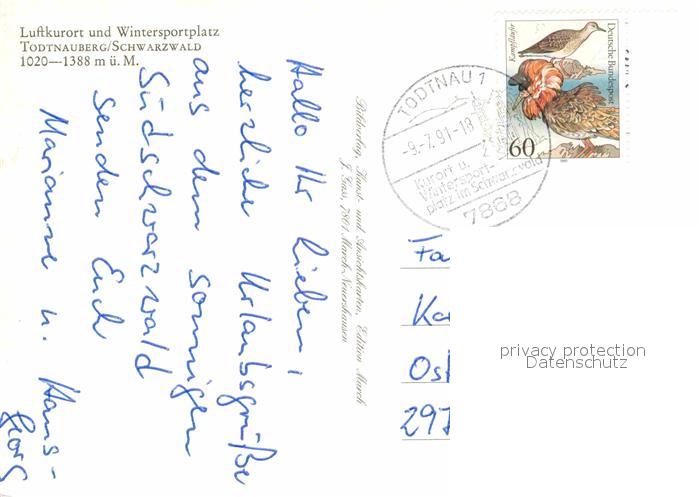 Luftkurort und Wintersportplatz
TODTNAUBERG/SCHWARZWALD
1020—1388 m ü. M.
Hallo Ihr Lieben!
herzliche Urlaubsgrüße
aus dem sonnigen
Südschwarzwald
senden Euch
Marianne u. Hans-
Georg
Bildverlag, Kunst- und Ansichtskarten, Edition March
J. Zuss, 7801 March-Neuershausen
Kampfläufer
Deutsche Bundespost
60
TODTNAU 1
-9.-7.91-18
Kurort u.
Wintersport-
platz im Schwarzwald
7868
Fa
Ka
Osl
297
privacy protection
Datenschutz